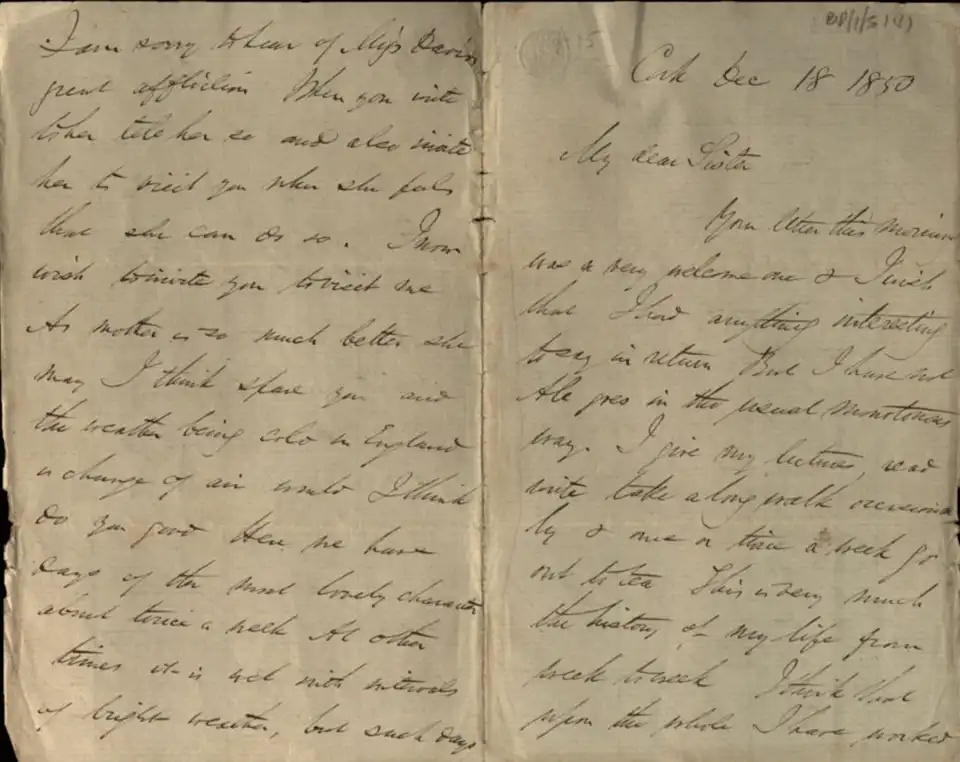 BP/1/5(1)
Cork Dec 18 1850
My dear Sister
Your letter this morning
was a very welcome one & I wish
that I had anything interesting
to say in return But I have not
All goes in the usual monotonous
way. I give my lectures, read
write take a long walk occasional
ly & once or twice a week go
out to tea This is very much
the history of my life from
week to week I think that
upon the whole I have worked
I am sorry to hear of Miss Davis
great affliction When you write
to her tell her so and also invite
her to visit you when she feels
that she can do so. I now
wish to invite you to visit me
As mother is so much better she
may I think spare you and
the weather being cold in England
a change of air would I think
do you good Here we have
days of the most lovely character
about twice a week At other
times it is wet with intervals
of bright weather, but such days